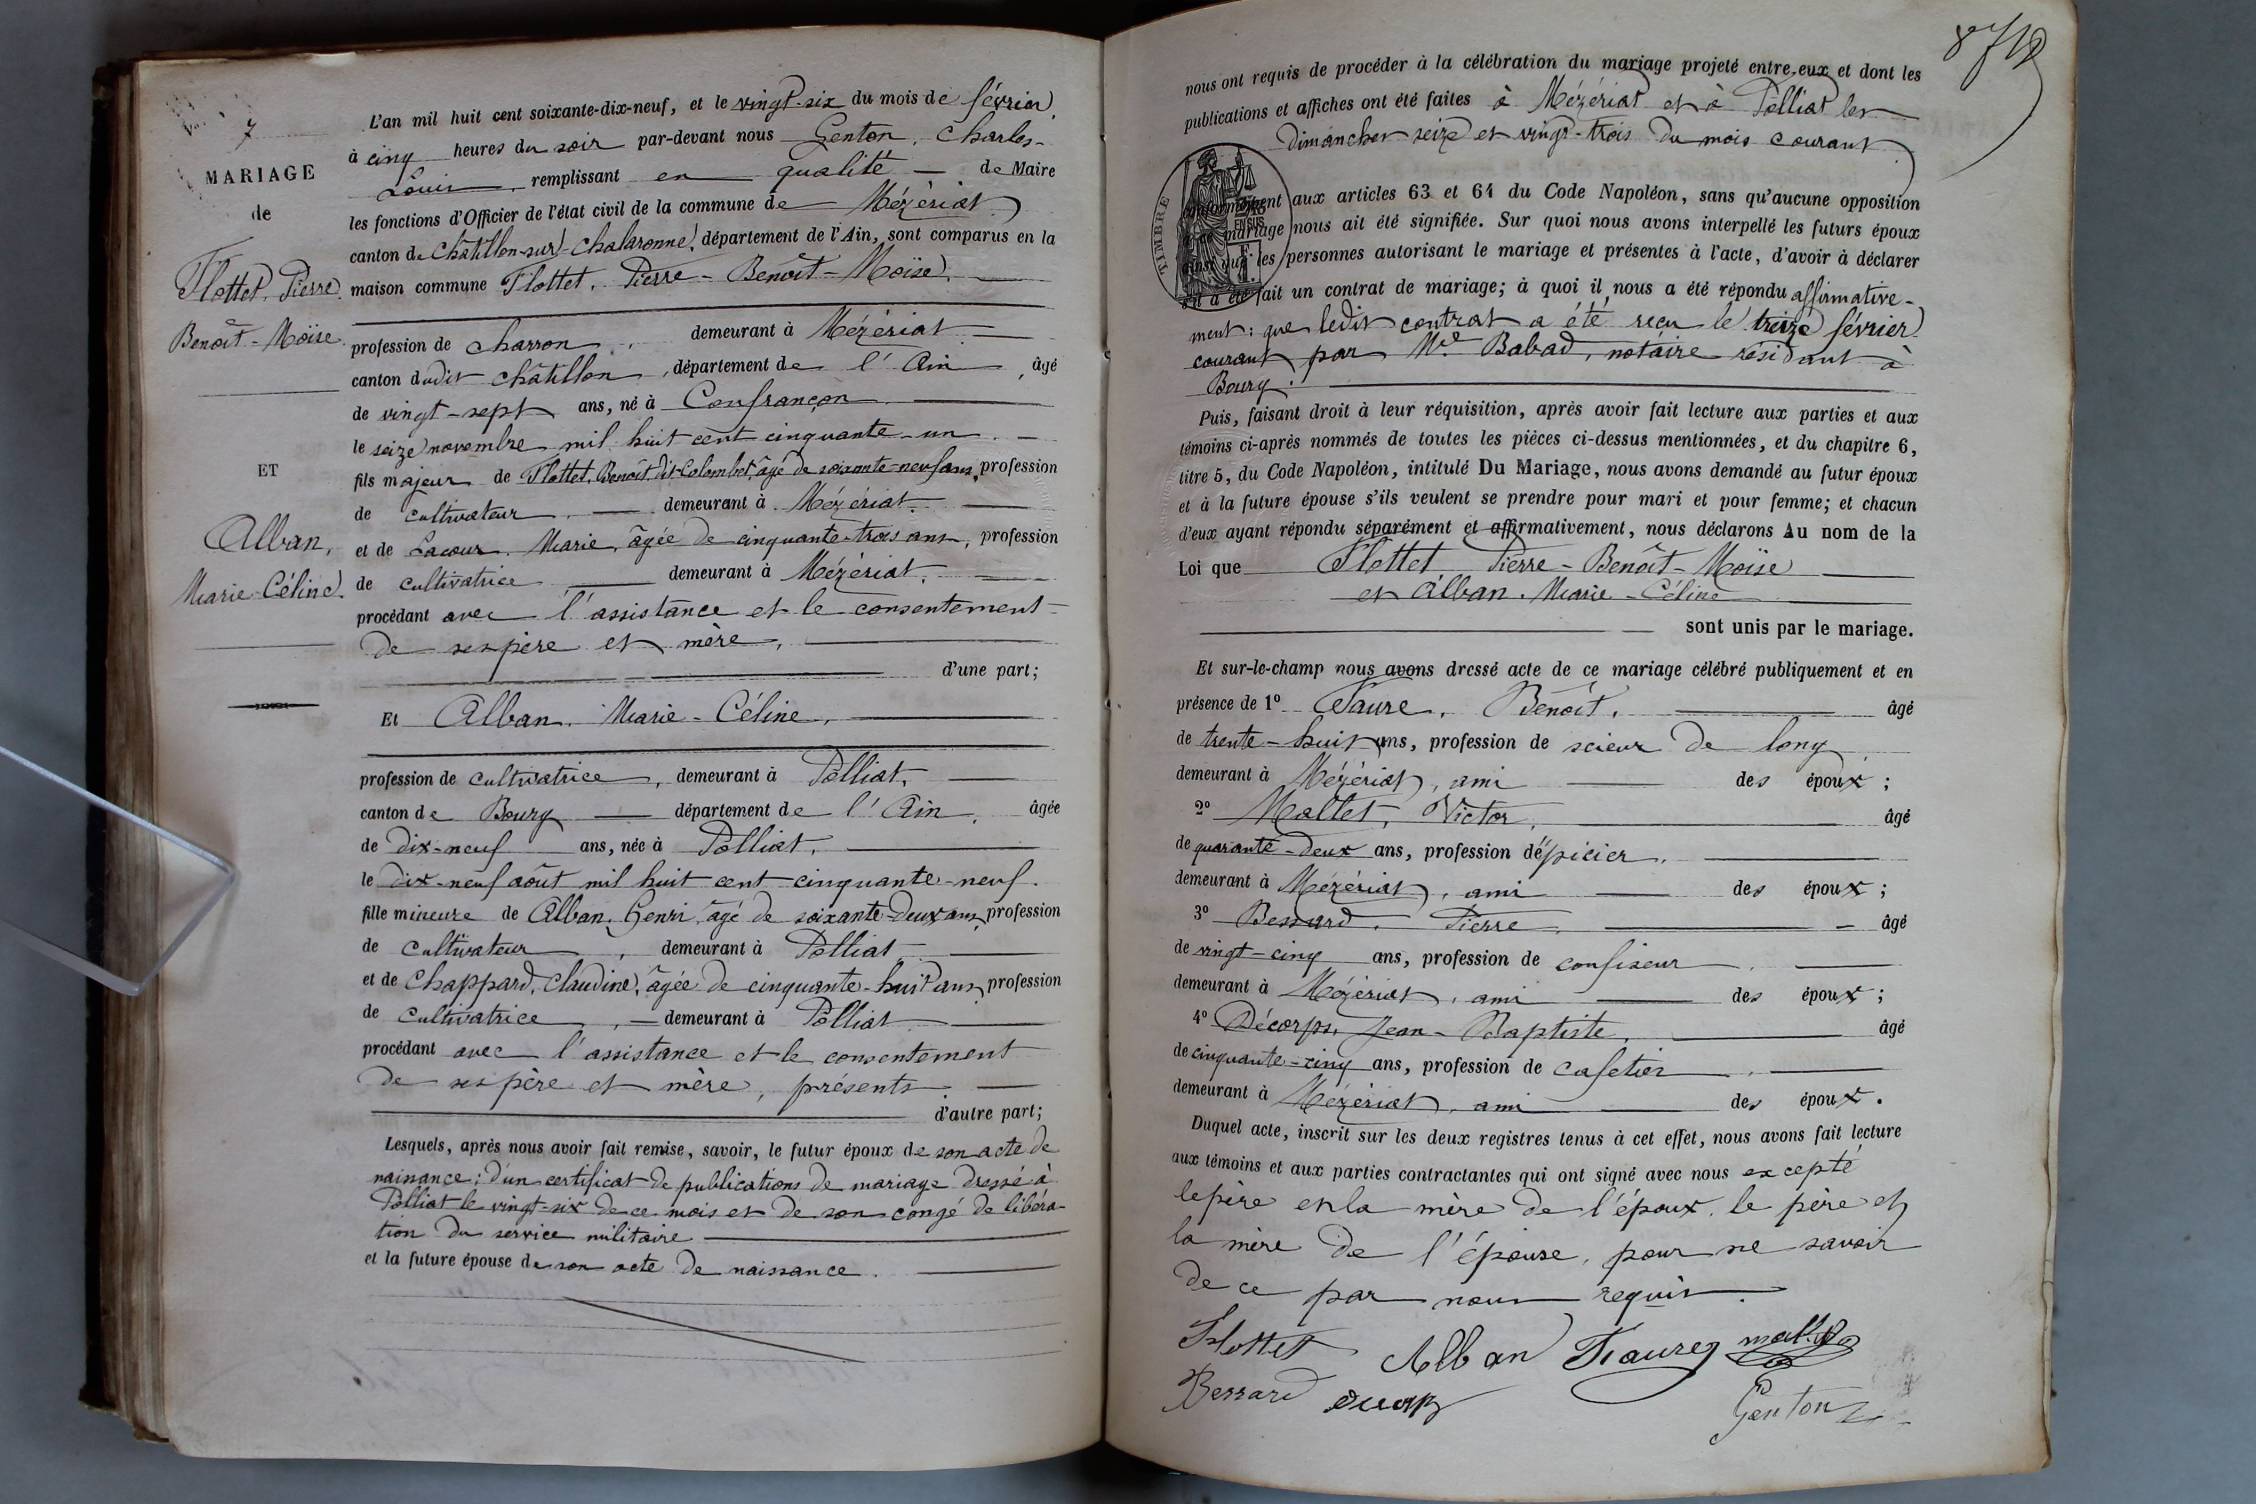 7
MARIAGE
de
Flottet, Pierre
Benoît-Moïse
ET
Alban,
Marie-Céline.
L'an mil huit cent soixante-dix-neuf, et le vingt-six du mois de février,
à cinq heures du soir par-devant nous Genton, Charles-
Louis, remplissant en qualité de Maire
les fonctions d'Officier de l'état civil de la commune de Mézériat
canton de Châtillon-sur-Chalaronne, département de l'Ain, sont comparus en la
maison commune Flottet, Pierre-Benoît-Moïse,
profession de charron, demeurant à Mézériat
canton dudit Châtillon, département de l'Ain, âgé
de vingt-sept ans, né à Confrançon
le seize novembre mil huit cent cinquante-un.
fils majeur de Flottet, Benoît dit Colombet, âgé de soixante-neuf ans, profession
de cultivateur, demeurant à Mézériat.
et de Lacour, Marie, âgée de cinquante-trois ans, profession
de cultivatrice demeurant à Mézériat,
procédant avec l'assistance et le consentement
de ses père et mère,
d'une part;
Et Alban, Marie-Céline,
profession de cultivatrice, demeurant à Polliat,
canton de Bourg département de l'Ain, âgée
de dix-neuf ans, née à Polliat,
le dix-neuf août mil huit cent cinquante-neuf.
fille mineure de Alban, Henri, âgé de soixante-deux ans, profession
de cultivateur, demeurant à Polliat
et de Chappard, Claudine, âgée de cinquante-huit ans, profession
de cultivatrice, demeurant à Polliat
procédant avec l'assistance et le consentement
de ses père et mère, présents.
d'autre part;
Lesquels, après nous avoir fait remise, savoir, le futur époux de son acte de
naissance; d'un certificat de publications de mariage dressé à
Polliat le vingt-six de ce mois et de son congé de libéra-
tion du service militaire
et la future épouse de son acte de naissance.
8
nous ont requis de procéder à la célébration du mariage projeté entre eux et dont les
publications et affiches ont été faites à Mézériat et à Polliat les
dimanches seize et vingt-trois du mois courant
TIMBRE
conformément aux articles 63 et 64 du Code Napoléon, sans qu'aucune opposition
mariage nous ait été signifiée. Sur quoi nous avons interpellé les futurs époux
ainsi que les personnes autorisant le mariage et présentes à l'acte, d'avoir à déclarer
s'il a été fait un contrat de mariage; à quoi il nous a été répondu affirmative-
ment: que ledit contrat a été reçu le treize février
courant par Me Babad, notaire résidant à
Bourg.
Puis, faisant droit à leur réquisition, après avoir fait lecture aux parties et aux
témoins ci-après nommés de toutes les pièces ci-dessus mentionnées, et du chapitre 6,
titre 5, du Code Napoléon, intitulé Du Mariage, nous avons demandé au futur époux
et à la future épouse s'ils veulent se prendre pour mari et pour femme; et chacun
d'eux ayant répondu séparément et affirmativement, nous déclarons Au nom de la
Loi que Flottet Pierre-Benoît-Moïse
et Alban, Marie-Céline
sont unis par le mariage.
Et sur-le-champ nous avons dressé acte de ce mariage célébré publiquement et en
présence de 1° Faure, Benoît, âgé
de trente-huit ans, profession de scieur de long
demeurant à Mézériat, ami des époux;
2° Mallet, Victor, âgé
de quarante-deux ans, profession d'épicier,
demeurant à Mézériat, ami des époux;
3° Bessard, Pierre, âgé
de vingt-cinq ans, profession de confiseur,
demeurant à Mézériat, ami des époux;
4° Décorps, Jean-Baptiste, âgé
de cinquante-cinq ans, profession de cafetier,
demeurant à Mézériat, ami des époux.
Duquel acte, inscrit sur les deux registres tenus à cet effet, nous avons fait lecture
aux témoins et aux parties contractantes qui ont signé avec nous excepté
le père et la mère de l'époux, le père et
la mère de l'épouse, pour ne savoir
de ce par nous requis.
Flottet Alban Faure Mallet
Bessard Genton